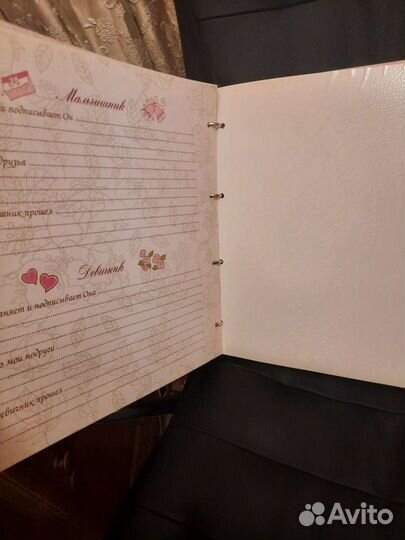 Мальчишник
и подписывает Он
друзья
шник прошел
Девичник
лняет и подписывает Она
о мои подруги
евичник прошел
Avito